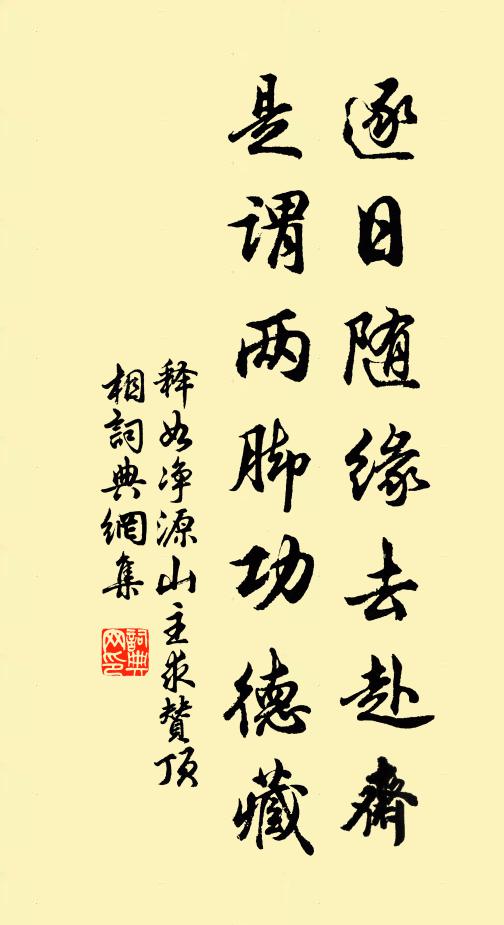 逐日随缘去赴齋
是谓两脚功德藏
释如净源山主求赞顶
相詞典網集
詞典
网印